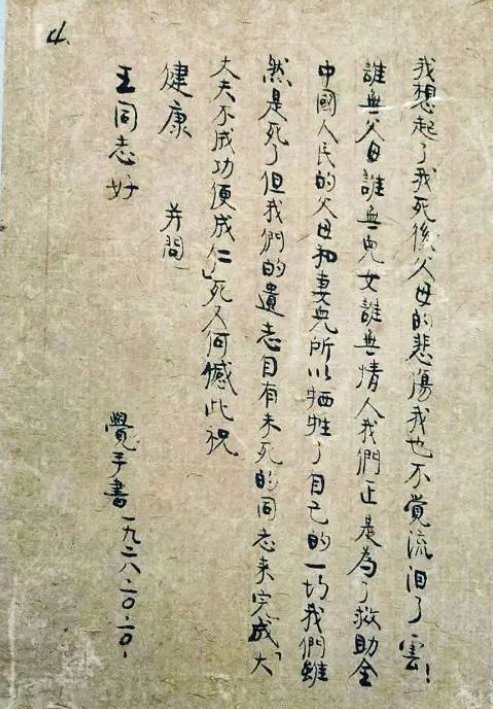 4.
我想起了我死後父母的悲傷我也不覺流泪了雲！
誰無父母誰無兒女誰無情人我們正是為了救助全
中國人民的父母和妻兒所以牺牲了自己的一切我們雖
然是死了但我們的遺志自有未死的同志来完成「大
丈夫不成功便成仁」死又何憾此祝
健康 并問
王同志好
覺手書一九二八·二〇·二〇·